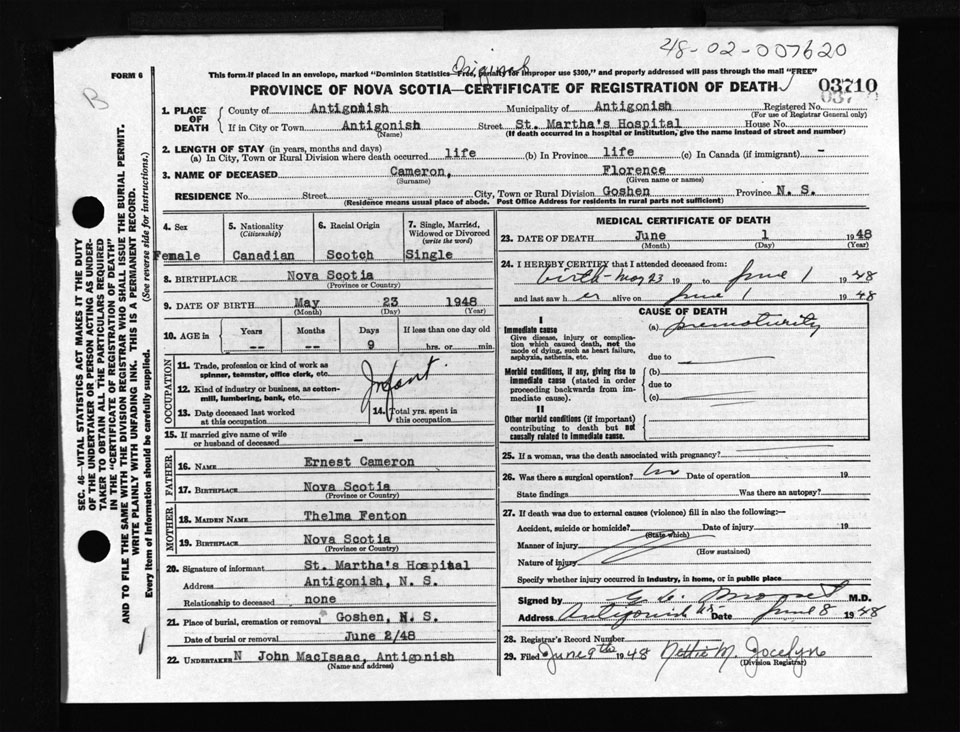 48-02-007620
Original
FORM 6
This form if placed in an envelope, marked "Dominion Statistics—Free, penalty for improper use $300," and properly addressed will pass through the mail "FREE"
B
PROVINCE OF NOVA SCOTIA—CERTIFICATE OF REGISTRATION OF DEATH
03710
1. PLACE OF DEATH
County of Antigonish Municipality of Antigonish Registered No.
(For use of Registrar General only)
If in City or Town Antigonish Street St. Martha's Hospital House No.
(Name) (If death occurred in a hospital or institution, give the name instead of street and number)
2. LENGTH OF STAY (in years, months and days)
(a) In City, Town or Rural Division where death occurred life (b) In Province life (c) In Canada (if immigrant) -
3. NAME OF DECEASED Cameron, Florence
(Surname) (Given name or names)
RESIDENCE No. Street City, Town or Rural Division Goshen Province N. S.
(Residence means usual place of abode. Post Office Address for residents in rural parts not sufficient)
4. Sex
Female
5. Nationality
(Citizenship)
Canadian
6. Racial Origin
Scotch
7. Single, Married, Widowed or Divorced
(write the word)
Single
8. BIRTHPLACE Nova Scotia
(Province or Country)
9. DATE OF BIRTH May 23 1948
(Month) (Day) (Year)
10. AGE in Years Months Days If less than one day old
-- -- 9 hrs. or min.
OCCUPATION
11. Trade, profession or kind of work as spinner, teamster, office clerk, etc.
12. Kind of industry or business, as cotton-mill, lumbering, bank, etc.
Infant
13. Date deceased last worked at this occupation
14. Total yrs. spent in this occupation
15. If married give name of wife or husband of deceased -
FATHER
16. NAME Ernest Cameron
17. BIRTHPLACE Nova Scotia
(Province or Country)
MOTHER
18. MAIDEN NAME Thelma Fenton
19. BIRTHPLACE Nova Scotia
(Province or Country)
20. Signature of informant St. Martha's Hospital
Address Antigonish, N. S.
Relationship to deceased none
21. Place of burial, cremation or removal Goshen, N. S.
Date of burial or removal June 2/48
22. UNDERTAKER N John MacIsaac, Antigonish
(Name and address)
MEDICAL CERTIFICATE OF DEATH
23. DATE OF DEATH June 1 1948
(Month) (Day) (Year)
24. I HEREBY CERTIFY that I attended deceased from:
birth - May 23 19 to June 1 1948
and last saw her alive on June 1 1948
CAUSE OF DEATH
I
Immediate cause (a) prematurity
Give disease, injury or complication which caused death, not the mode of dying, such as heart failure, asphyxia, asthenia, etc.
due to
Morbid conditions, if any, giving rise to immediate cause (stated in order proceeding backwards from immediate cause).
(b)
due to
(c)
II
Other morbid conditions (if important) contributing to death but not causally related to immediate cause.
25. If a woman, was the death associated with pregnancy?
26. Was there a surgical operation? no Date of operation 19
State findings Was there an autopsy?
27. If death was due to external causes (violence) fill in also the following:—
Accident, suicide or homicide? Date of injury 19
(State which)
Manner of injury
(How sustained)
Nature of injury
Specify whether injury occurred in industry, in home, or in public place
Signed by M.D.
Address Antigonish NS Date June 8 1948
28. Registrar's Record Number
29. Filed June 9th 1948 Nettie M. Jocelyn
(Division Registrar)
SEC. 46—VITAL STATISTICS ACT MAKES IT THE DUTY
OF THE UNDERTAKER OR PERSON ACTING AS UNDER-
TAKER TO OBTAIN ALL THE PARTICULARS REQUIRED
IN THE "CERTIFICATE OF REGISTRATION OF DEATH"
AND TO FILE THE SAME WITH THE DIVISION REGISTRAR WHO SHALL ISSUE THE BURIAL PERMIT.
WRITE PLAINLY WITH UNFADING INK. THIS IS A PERMANENT RECORD.
Every Item of Information should be carefully supplied. (See reverse side for instructions.)